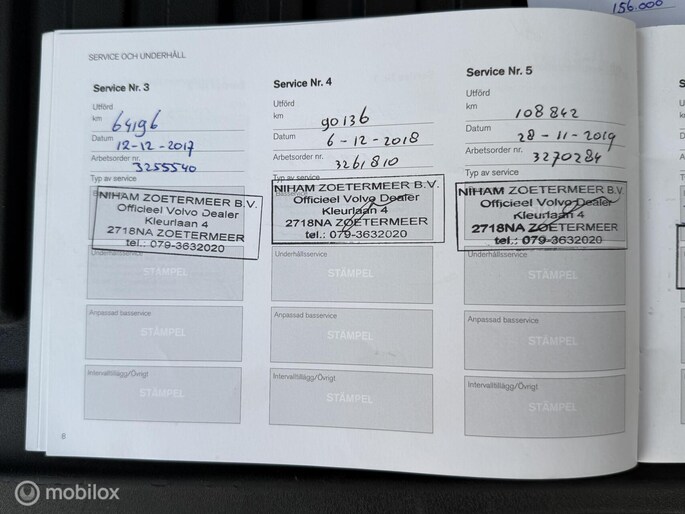 156.000
SERVICE OCH UNDERHÅLL
Service Nr. 3
Utförd
km 64196
Datum 12-12-2017
Arbetsorder nr. 3255540
Typ av service
NIHAM ZOETERMEER B.V.
Officieel Volvo Dealer
Kleurlaan 4
2718NA ZOETERMEER
tel.: 079-3632020
Underhållsservice
STÄMPEL
Anpassad basservice
STÄMPEL
Intervalltillägg/Övrigt
STÄMPEL
8
Service Nr. 4
Utförd
km 90136
Datum 6-12-2018
Arbetsorder nr. 3261810
Typ av service
NIHAM ZOETERMEER B.V.
Officieel Volvo Dealer
Kleurlaan 4
2718NA ZOETERMEER
tel.: 079-3632020
Underhållsservice
STÄMPEL
Anpassad basservice
STÄMPEL
Intervalltillägg/Övrigt
STÄMPEL
Service Nr. 5
Utförd
km 108842
Datum 28-11-2019
Arbetsorder nr. 3270284
Typ av service
NIHAM ZOETERMEER B.V.
Officieel Volvo Dealer
Kleurlaan 4
2718NA ZOETERMEER
tel.: 079-3632020
Underhållsservice
STÄMPEL
Anpassad basservice
STÄMPEL
Intervalltillägg/Övrigt
STÄMPEL
mobilox